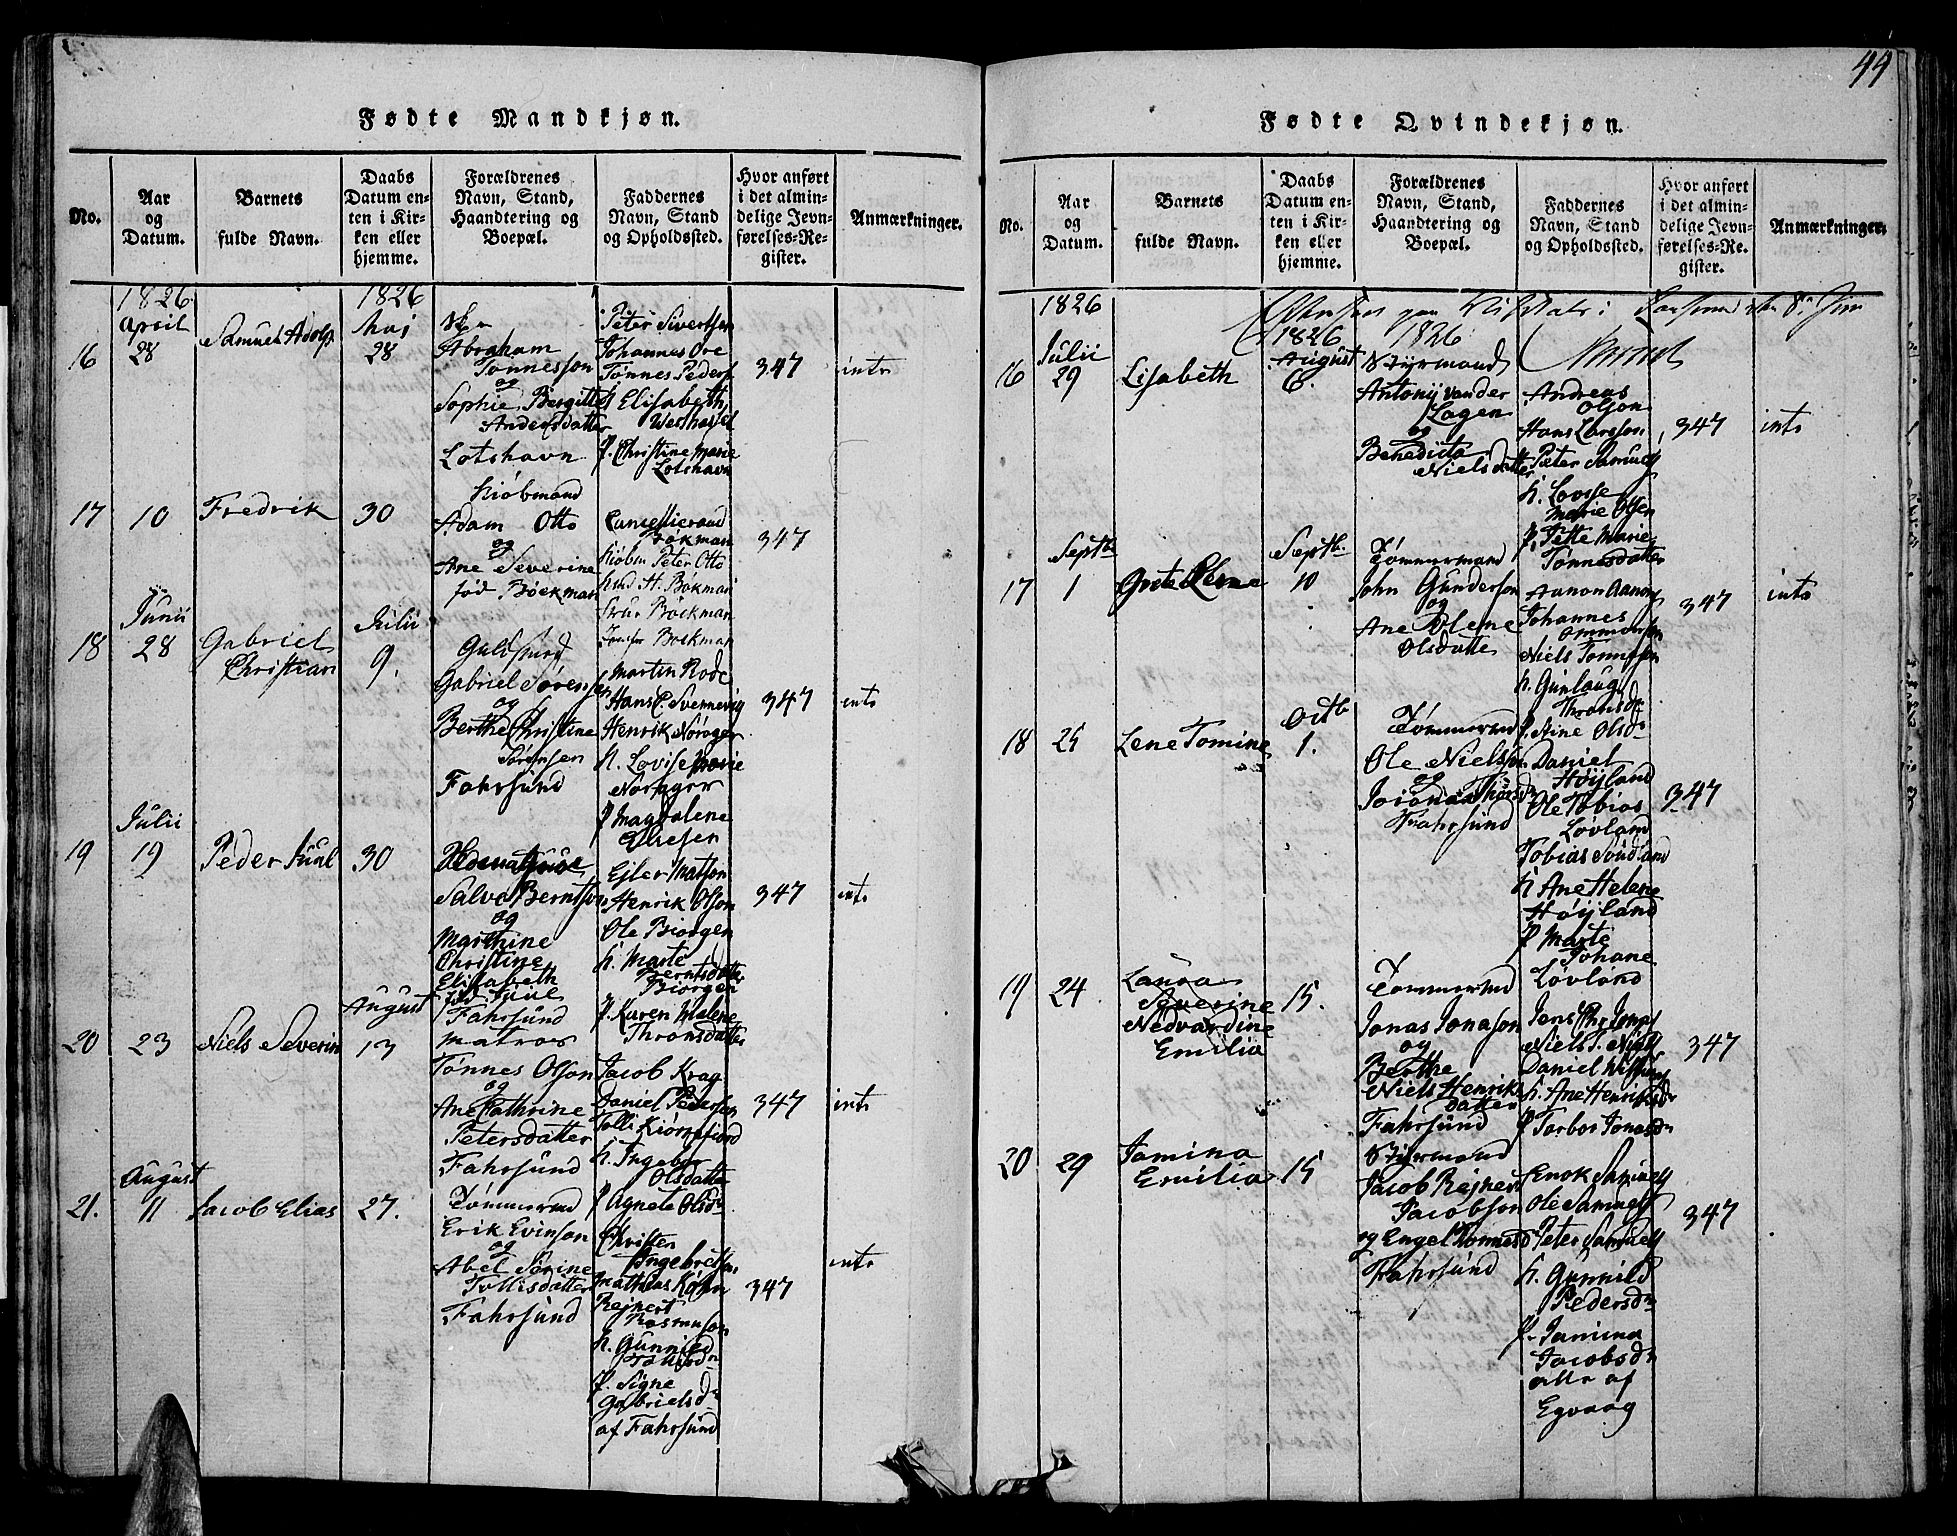 44
Fødte Mandkjøn.
No.
Aar
og
Datum.
Barnets
fulde Navn.
Daabs
Datum en-
ten i Kir-
ken eller
hjemme.
Forældrenes
Navn, Stand,
Haandtering og
Boepæl.
Faddernes
Navn, Stand
og Opholdssted.
Hvor anført
i det almin-
delige Jevn-
førelses-Re-
gister.
Anmærkninger.
16
1826
April
28
Samuel Adolp
1826
Maj
28
Abraham
Tønnesson
og
Sophie Birgitte
Andersdatter
Lotshavn
Peter Sivertsen
Johannes Ore
Tønnes Peders
Elisabeth
P. Christine Marie
Lotshavn
347
intr
17
10
Fredrik
30
Kiøbmand
Adam Otto
og
Ane Severine
fød Bøckman
Bøkman
Peter Otto
H. Bøkman
Bøckman
Bøckman
347
18
Junii
28
Gabriel
Christian
Julii
9.
Guldsmed
Gabriel Sørensen
og
Berthe Christine
Sørensen
Fahrsund
Martin Rode
Hans C. Svennevig
Henrik Nørager
h. Lovise Marie
Nørager
P Magdalene
Ellefsen
347
intr
19
Julii
19
Peder Juul
30
Salve Berntson
og
Marthine
Christine
Elisabeth
fød Juul
Fahrsund
Ejler Matson
Henrik Olson
Ole Biorgen
h. Marte
Berntsdatter
Biorgen
P. Karen Malene
Thronsdatter
347
intr
20
23
Niels Severin
August
13
Matros
Tønnes Olson
og
Ane Cathrine
Petersdatter
Fahrsund
Jacob Krag
Daniel Pedersen
Tolli Kiørrefiord
h. Ingebor
Olsdatter
P Agnete Olsdr
347
intr
21.
August
11
Jacob Elias
27.
Tømmermd
Erik Evinson
og
Abel Serine
Tollisdatter
Fahrsund
Christen
Ingebretsen
Mathias
Rejnert
Rasmuson
h. Gunnild
Tollisdr
P. Signe
Gabrielsdr
af Fahrsund
347
intr
Fødte Qvindekjøn.
No.
Aar
og
Datum.
Barnets
fulde Navn.
Daabs
Datum en-
ten i Kir-
ken eller
hjemme.
Forældrenes
Navn, Stand,
Haandtering og
Boepæl.
Faddernes
Navn, Stand
og Opholdssted.
Hvor anført
i det almin-
delige Jevn-
førelses-Re-
gister.
Anmærkninger.
1826
1826
16
Julii
29
Lisabeth
1826
August
6.
Styrmand
Antonij vander
Lagen
og
Benedicta
Nielsdatter
Andreas
Olson
Hans Larsson
Peter Samuels
h. Lovise
Marie Olsen
P. Jette Marie
Tønnesdatter
347
intr
17
Septbr
1
Grete Elene
Septbr
10
Tømmermand
John Gunderson
og
Ane Olene
Olsdatte
Aanon Aanons
Johannes
Ommundsen
Niels Tønnesen
h. Gunlaug
Thronsdr
P. Aine Olsdr
347
intr
18
25
Lene Tomine
Octb
1.
Tømmermd
Ole Nielson
og
Fahrsund
Daniel
Høyland
Ole Tobias
Løvland
Tobias Sondland
h Ane Helene
Høyland
P Marte
Johane
Løvland
347
19
24
Laura
Severine
Nedvardine
Emilia
15.
Tømmermd
Jonas Jonason
og
Berthe
Niels Henriks
datter
Fahrsund
Jens Chr. Jonas
Niels P. Niels
Daniel
h. Ane Henriksdr
P Tarbor Jonasdr
347
20
29
Jamina
Emilia
15
Styrmand
Jacob Rejnert
Jacobson
og Engel Tønnesd
Fahrsund
Enok Samuels
Ole Samuels
Peter Samuels
h. Gunnild
Pedersdr
P. Jamina
Jacobsdr
alle af
Egvaag
347